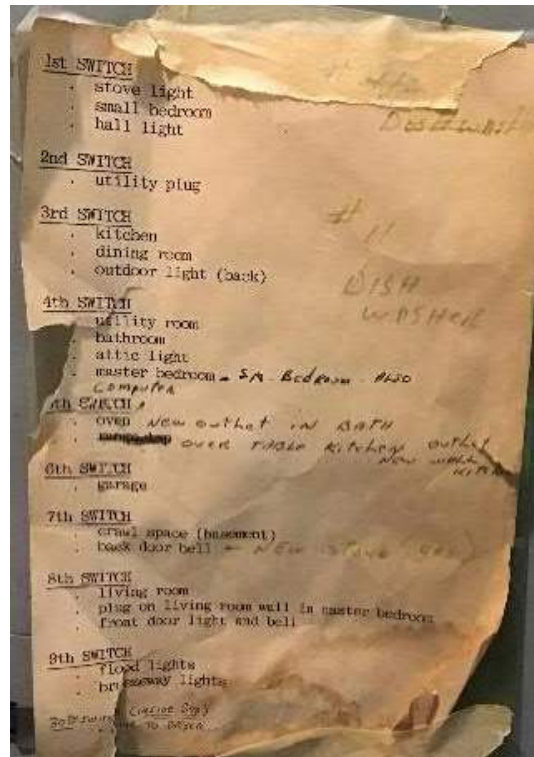 1st SWITCH
. stove light
. small bedroom
. hall light
DISHWASH
2nd SWITCH
. utility plug
3rd SWITCH
. kitchen
. dining room
. outdoor light (back)
# 11
DISH
WASHER
4th SWITCH
. utility room
. bathroom
. attic light
. master bedroom - SM. Bedroom ALSO
COMPUTER
5th SWITCH
. oven NEW outlet IN BATH
. OVER TABLE Kitchen outlet
NEW WALL
6th SWITCH
. garage
7th SWITCH
. crawl space (basement)
. back door bell ← NEW STOVE
8th SWITCH
. living room
. plug on living room wall in master bedroom
. front door light and bell
9th SWITCH
. flood lights
. breezeway lights